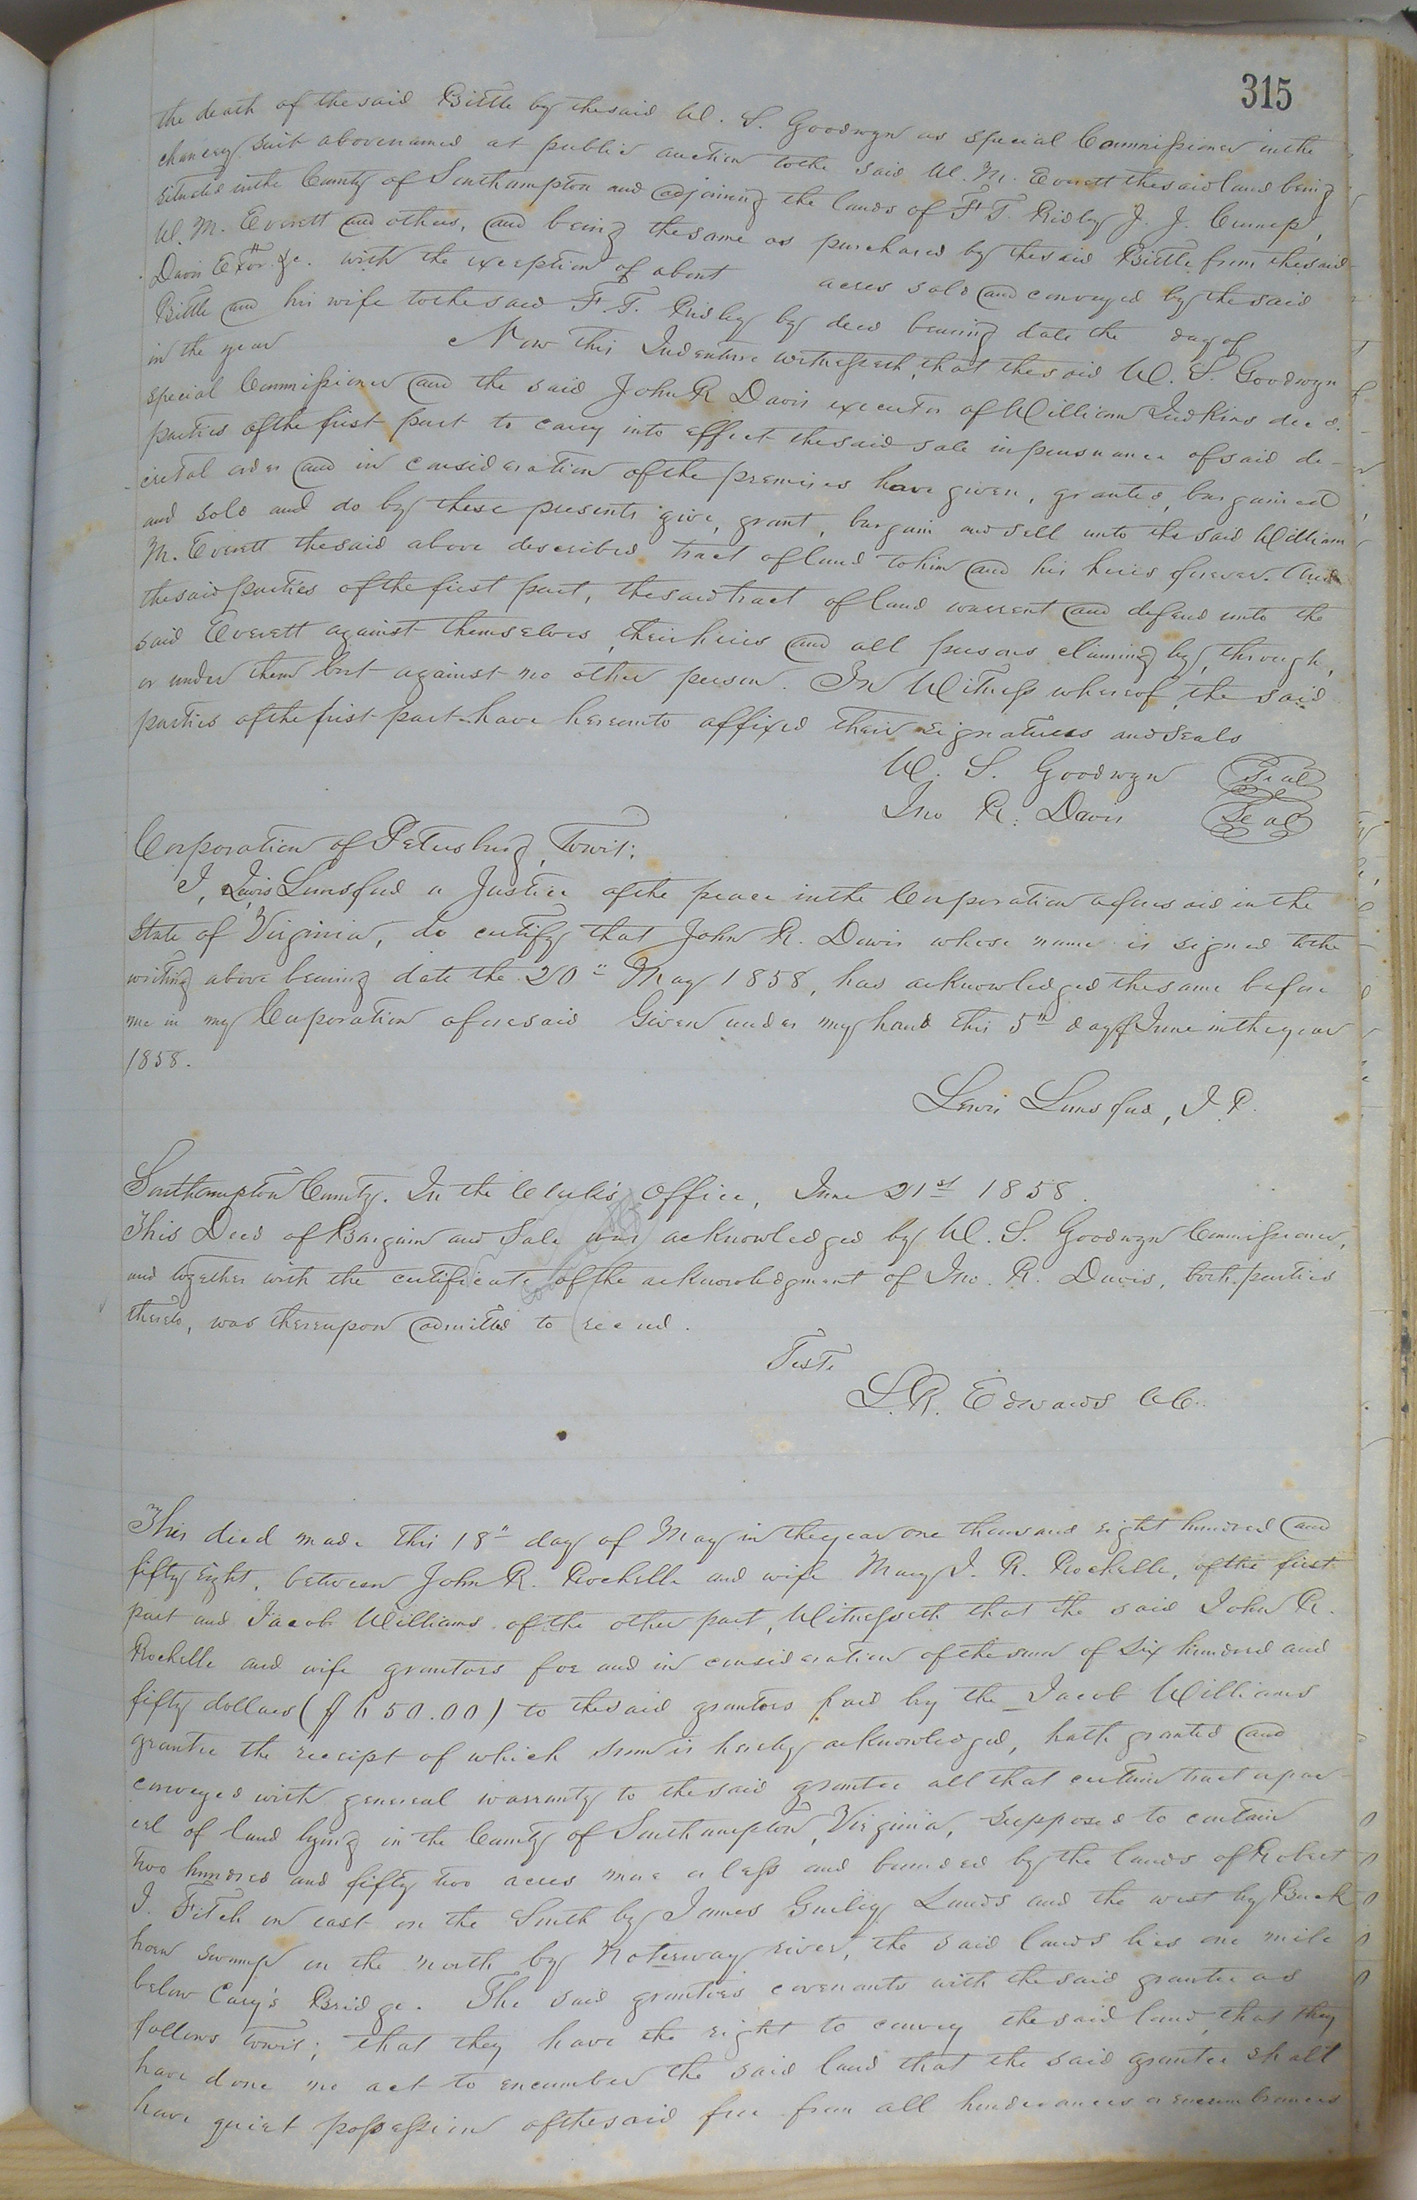 315
the death of the said Bittle by the said W. S. Goodwyn as special Commissioner in the
chancery suit abovenamed at public auction to the said W. M. Everett the said land being
situated in the County of Southampton and adjoining the lands of F. T. Ridley J. J.
W. M. Everett and others, and being the same as purchased by the said Bittle from the said
Davis Exor. &c. with the exception of about acres sold and conveyed by the said
Bittle and his wife to the said F. T. Ridley by deed bearing date the day of
in the year Now this Indenture witnesseth, that the said W. S. Goodwyn
special Commissioner and the said John R Davis executor of William Judkins decd.
parties of the first part to carry into effect the said sale in pursuance of said de-
cretal order and in consideration of the premises have given, granted, bargained
and sold and do by these presents give, grant, bargain and sell unto the said William
M. Everett the said above described tract of land to him and his heirs forever. And
the said parties of the first part, the said tract of land warrent and defend unto the
said Everett against themselves, their heirs and all persons claiming by, through,
or under them but against no other person. In Witness whereof the said
parties of the first part have hereunto affixed their signatures and seals
W. S. Goodwyn Seal
Jno R. Davis Seal
Corporation of Petersburg, towit:
I, Lewis Lunsford a Justice of the peace in the Corporation aforesaid in the
State of Virginia, do certify that John R. Davis whose name is signed to the
writing above bearing date the 20" May 1858, has acknowledged the same before
me in my Corporation aforesaid Given under my hand this 5th day of June in the year
1858.
Lewis Lunsford, J. P.
Southampton County. In the Clerk's Office, June 21st 1858.
This Deed of Bargain and Sale was acknowledged by W. S. Goodwyn Commissioner,
and together with the certificate of the acknowledgment of Jno. R. Davis, both parties
thereto, was thereupon admitted to record.
Teste
L. R. Edwards CC.
This deed made this 18" day of May in the year one thousand eight hundred and
fifty eight, between John R. Rochelle and wife Mary J. R. Rochelle, of the first
part and Jacob Williams of the other part, Witnesseth that the said John R.
Rochelle and wife grantors for and in consideration of the sum of six hundred and
fifty dollars ($650.00) to the said grantors paid by the Jacob Williams
grantee the receipt of which sum is hereby acknowledged, hath granted and
conveyed with general warranty to the said grantee all that certain tract or par-
cel of land lying in the County of Southampton, Virginia, supposed to contain
two hundred and fifty two acres more or less and bounded by the lands of Robert
J. Fitch on east on the South by James Gurley Lands and the west by Buck
horn swamp on the north by Noterway river, the said lands lies one mile
below Cary's Bridge. The said granties covenants with the said grantee as
follows towit; that they have the right to convey the said land, that they
have done no act to encumber the said land that the said grantee shall
have quiet possession of the said free from all hinderances or encumbrances